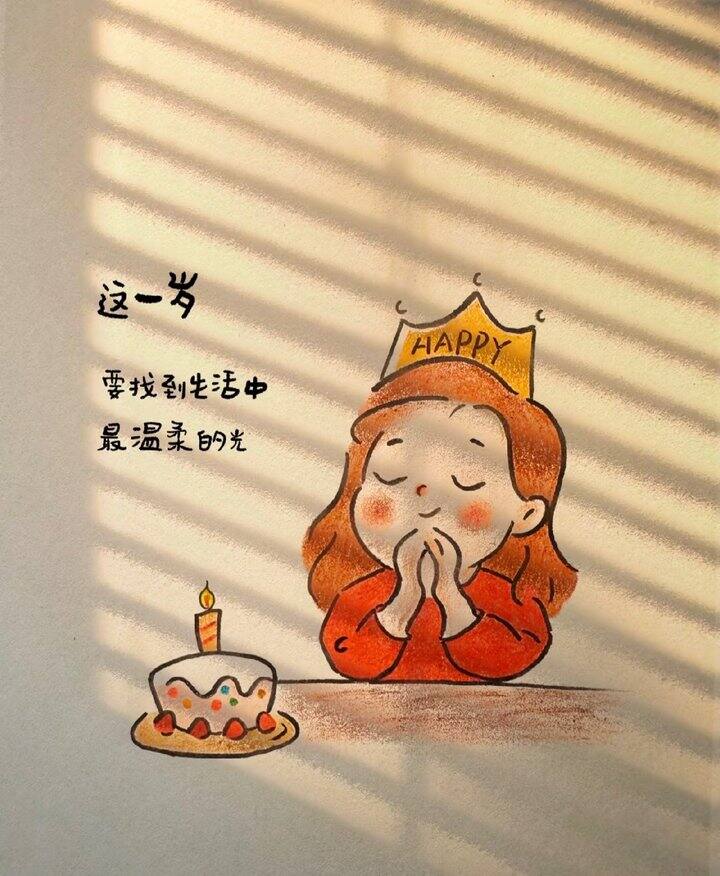 这一岁
要找到生活中
最温柔的光
HAPPY